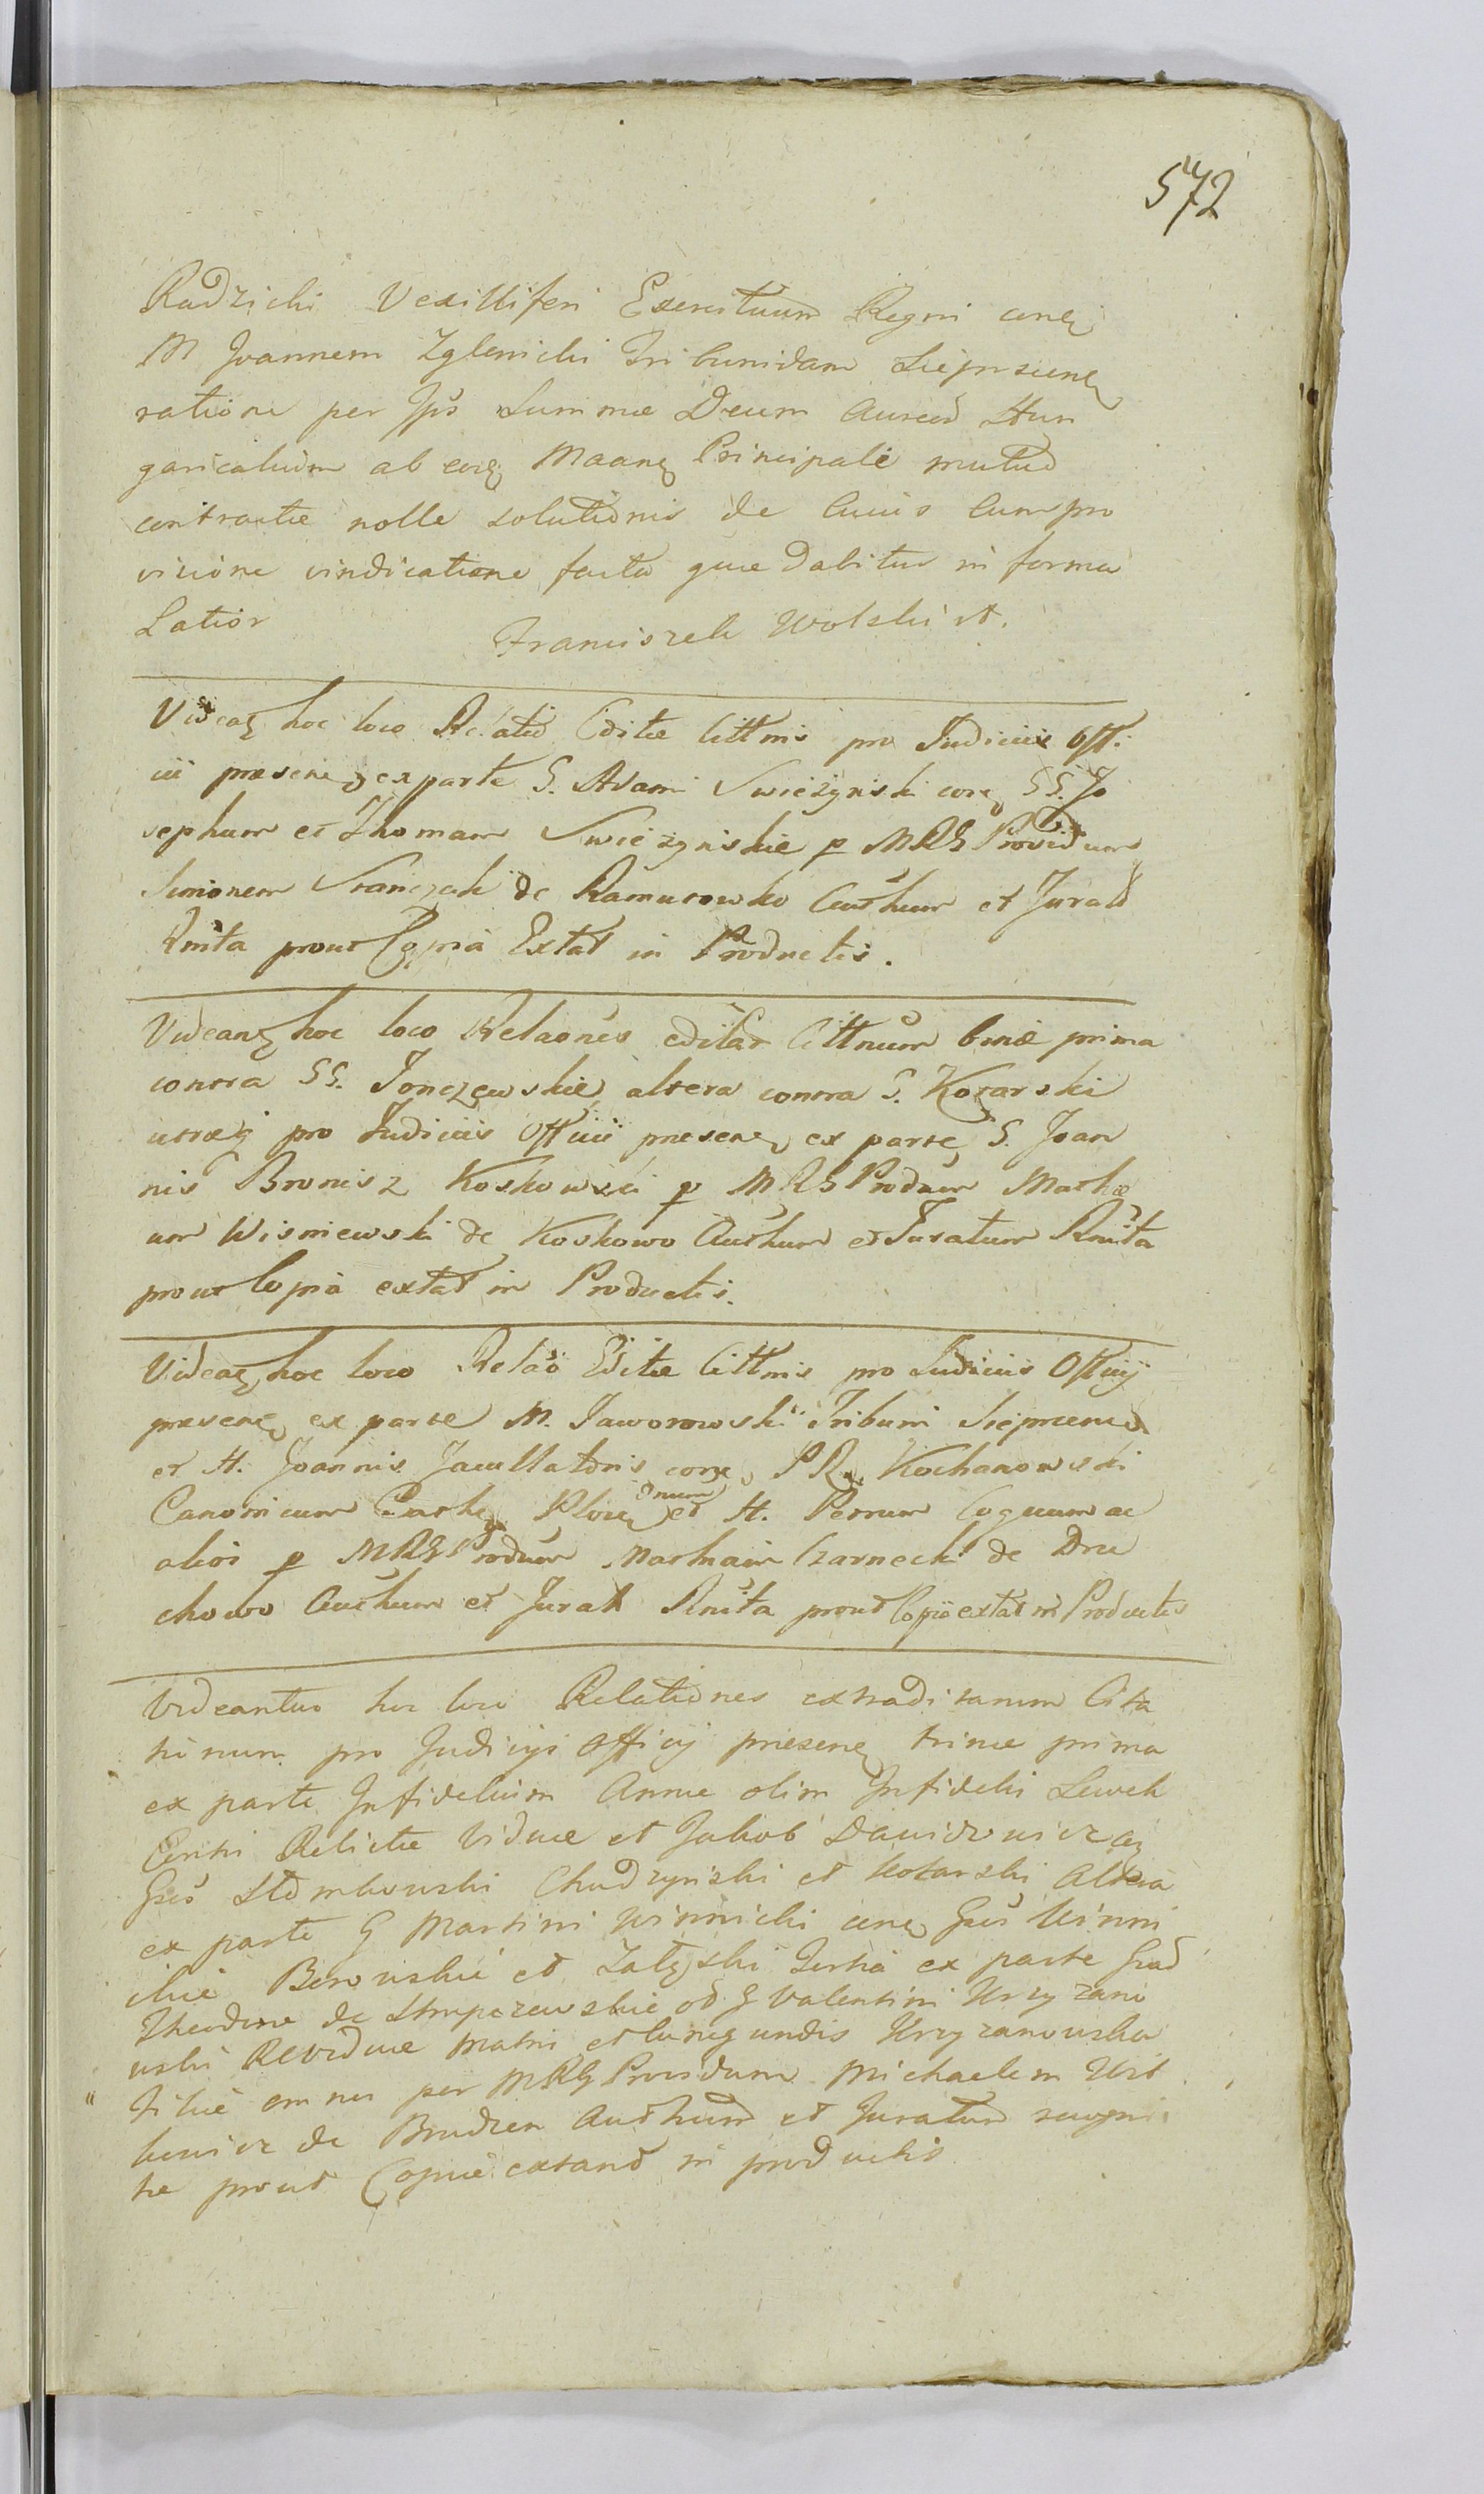 572
Radzicki Vexilliferi Exercituum Regni cone
M Joannem Zglenicki Tribunidam Sieprscens
ratione per Jps Summæ Decem Aureor Hun
garicalium ab eoq Maane Principale mutuo
contractæ nolle solutionis de Cuius Cum pro
visione vindicatione facta quæ dabitur in forma
Latior
Franciszek Wolski st.
Videaz hoc loco Relatio Editæ Cittnis pro Judiciis Offi
cii præsene ex parte G. Adami Swieżynski cone GG. Jo
sephum et Thomam Swieżynskie p MRG Providum
Simonem Stanczak de Ramutowko Authum et Jurat
Rnita prout Copia Extat in Productis.
Videanz hoc loco Relaones editar Cittnum binæ prima
contra GG. Jonczewskie altera contra G. Kozarski
utraq pro Judiciis Officii presene ex parte G. Joan
nis Bronisz Koskowski p MRG Produm Mathæ
um Wisniewski de Koskowo Authum et Juratum Rnita
prout Copia extat in Productis.
Videaz hoc loco Relao Editæ Cittnis pro Judiciis Officij
presene ex parte M. Jaworowski Tribuni Sieprcens
et H. Joannis Jacullatoris cone PR. Kochanowski
Canonicum Cathe Ploce onum et H. Petrum Coquum ac
alios p MRG Produm Mathiam Czarnecki de Dru
chowo Authum et Jurat Rnita prout Copia extat in Productis
Videantur hoc loco Relationes extraditarum Cita
tionum pro Judicijs Officij præsene trinæ prima
ex parte Infidelium Annæ olim Infidelis Lewek
Relictæ Viduæ et Jakob Dawidowicz
Gses Stombowski Chudzynski et Kotarski Altera
ex parte G Martini Winnicki cone Gses Winni
ckie Borowskie et Zaleski Tertia ex parte Grod
Theodoræ de Strupczewskie od G Valentini Krzyzano
wski Reviduæ Matris et Cunegundis Krzyzanowska
Filiæ omnes per MRG Providum Michaelem Urb
kowicz de Brudzen Authum et Juratum recogni
tæ prout Copiæ extant in productis